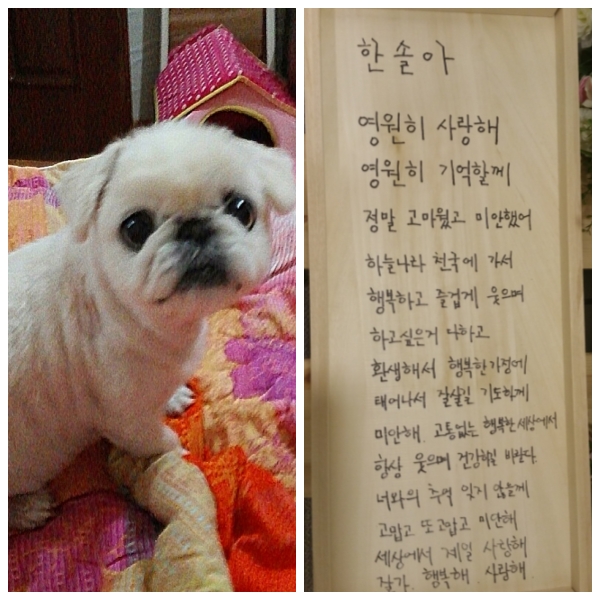 한솔아
영원히 사랑해
영원히 기억할께
정말 고마웠고 미안했어
하늘나라 천국에 가서
행복하고 즐겁게 웃으며
하고싶은거 다하고
환생해서 행복한가정에
태어나서 잘살길 기도할게
미안해. 고통없는 행복한 세상에서
항상 웃으며 건강하길 바란다.
너와의 추억 잊지 않을게
고맙고 또고맙고 미안해
세상에서 제일 사랑해
잘가. 행복해. 사랑해.